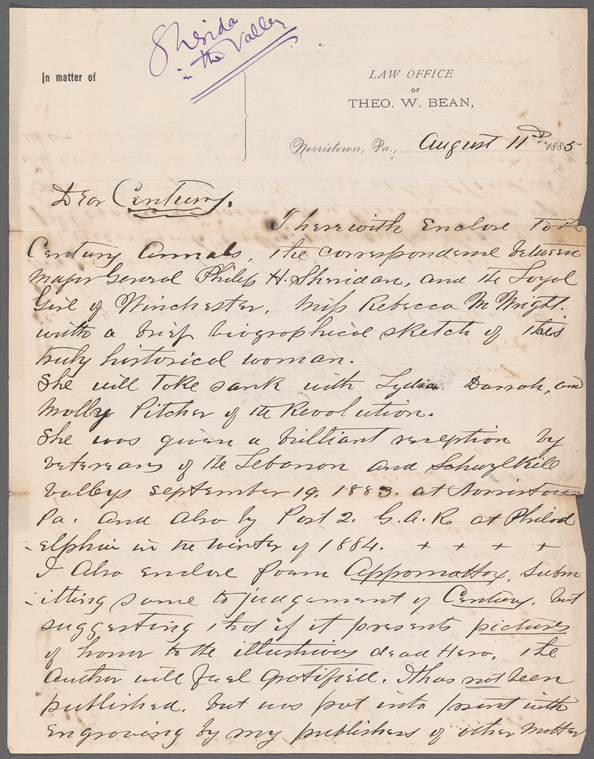 Sherida
in the Valley
In matter of
LAW OFFICE
OF
THEO. W. BEAN,
Norristown, Pa., August 11th 1885
Dear Century.
I herewith Enclose to the
Century Annals, the correspondence between
Major General Philip H. Sheridan, and the Loyal
Girl of Winchester, Miss Rebecca M Wright.
with a brief biographical sketch of this
truly historical woman.
She will take rank with Lydia Darrah, and
Molly Pitcher of the Revolution.
She was given a brilliant reception by
veterans of the Lebanon and Schuylkill
Valleys September 19. 1883. at Norristown
Pa. and also by Post 2. G. A. R at Philad
elphia in the winter of 1884. + + + +
I Also enclose poem Appomattox, subm
itting same to judgement of Century. but
suggesting that if it presents pictures
of honor to the illustrious dead Hero, the
Author will feel gratified. It has not been
published. but was put into print with
engraving by my publishers of other matter